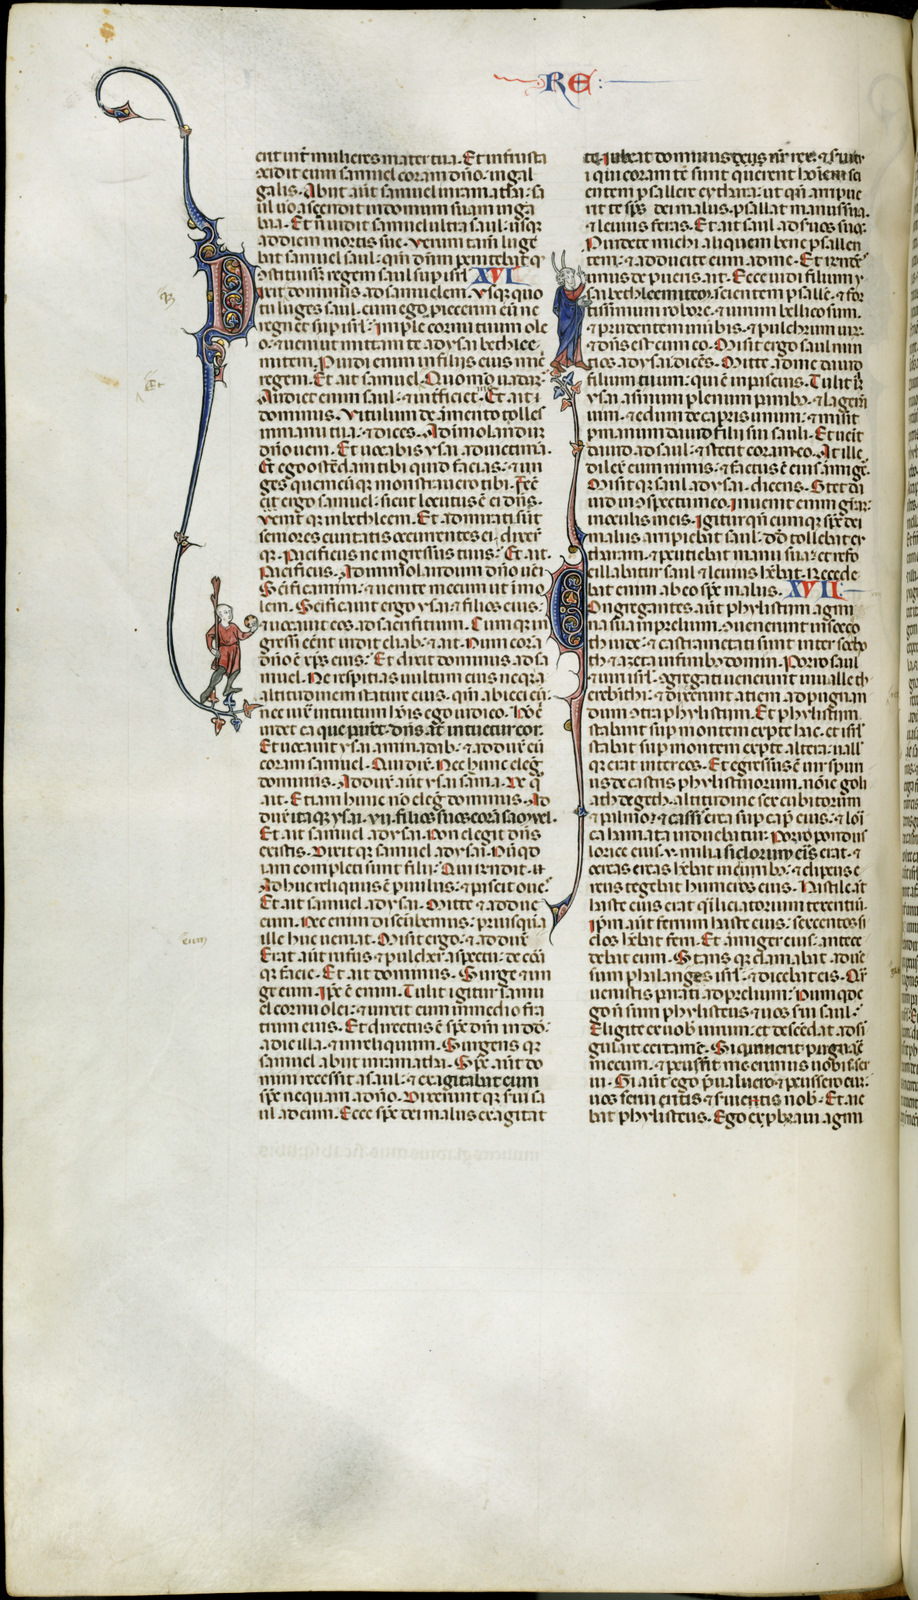 RE
erit int mulieres mater tua. Et in frusta
cidit eum samuel coram dño in gal
galis. Abiit aut samuel in ramatha: sa
ul uo ascendit in domum suam in ga
baa. Et ñ uidit samuel ultra saul usqr
ad diem mortis sue. Verum tam luge
bat samuel saul: qm dnm penitebat q
ostituiss regem saul sup isrl. XVI.
Dixit dominus ad samuelem. Vsqr quo
tu luges saul. cum ego proiecerim eu ne
regnet sup isrl: Imple cornu tuum ole
o: ⁊ ueni ut mittam te ad ysai bethlee
mitem. Puidi enim in filiis eius m
regem. Et ait samuel. Quomo uadam:
Audiet enim saul: ⁊ intficiet. Et ait
dominus. Vitulum de armento tolles
in manu tua: ⁊ dices. Ad imolandum
dño ueni. Et uocabis ysai ad uictima.
Et ego ostdam tibi quid facias: ⁊ un
ges quemcuq monstrauero tibi. Fec
cit ergo samuel: sicut locutus e ei dñs.
Venit qr in bethleem. Et admirati sut
seniores ciuitatis occurrentes ei: dixer
qr. Pacificus ne ingressus tuus: Et ait.
Pacificus. Ad immolandum dño ueni
Scificamini: ⁊ uenite mecum ut imo
lem. Scificauit ergo ysai ⁊ filios eius:
⁊ uocauit eos ad sacrificium. Cum qr in
gressi eent uidit eliab: ⁊ ait. Num cora
dño e xps eius: Et dixit dominus ad sa
muel. Ne respicias uultum eius neq
altitudinem stature eius. qm abieci eu:
nec iuxta intuitum hois ego iudico. Ho e
uidet ea que parent. dñs at intuetur cor.
Et uocauit ysai aminadab: ⁊ adduxit eu
coram samuel. Qui dixit. Nec hunc eleg
dominus. Adduxit aut ysai sama. De q
ait. Etiam hunc no eleg dominus. Ad
duxit itaqr ysai .vii. filios suos cora saouel.
Et ait samuel ad ysai. Non elegit dñs
ex istis. Dixit qr samuel ad ysai. Nuqd
iam completi sunt filii: Qui rndit.
Adhuc reliquus e puulus: ⁊ pascit oue.
Et ait samuel ad ysai. Mitte ⁊ adduc
eum. Nec enim discubemus: priusqua
ille huc ueniat. Misit ergo: ⁊ adduxit
Erat aut rufus ⁊ pulcher aspectu: deco
qr facie. Et ait dominus. Surge ⁊ un
ge eum. Ipe e enim. Tulit igitur samu
el cornu olei: ⁊ unxit eum in medio fra
trum eius. Et directus e sps dñi in dd:
a die illa: ⁊ in reliquum. Surgens qr
samuel abiit in ramatha. Sps aut do
mini recessit a saul: ⁊ exagitabat eum
sps nequam a dño. Dixerunt qr serui sa
ul ad eum. Ecce sps dei malus exagitat
te. Iubeat dominus noster rex: ⁊ serui
i qui coram te sunt querent hoiem sci
entem psallere cythara: ut qñ aripue
rit te sps dei malus. psallat manu sua.
⁊ leuius feras. Et ait saul ad suos suos.
Puidete michi aliquem bene psallen
tem: ⁊ adducite eum ad me. Et rnde
unus de pueris ait. Ecce uidi filium y
sai bethleemitem. scientem psalle ⁊ for
tissimum robore: ⁊ uirum bellicosum.
⁊ prudentem in uerbis: ⁊ pulchrum uir:
⁊ dñs est cum eo. Misit ergo saul nun
tios ad ysai dices. Mitte ad me dauid
filium tuum: qui e in pascuis. Tulit
ysai asinum plenum panibus: ⁊ lagena
uini: ⁊ edum de capris unum: ⁊ misit
p manum dauid filii sui sauli. Et uenit
dauid ad saul: ⁊ stetit coram eo. At ille
dilex eum nimis: ⁊ factus e eius armige.
Misit qr saul ad ysai dicens. Stet da
uid in ospectu meo. Inuenit enim gram
in oculis meis. Igitur qn cumqr sps dei
malus aripiebat saul. dd tollebat cy
tharam: ⁊ peutiebat manu sua: ⁊ refo
cillabatur saul ⁊ leuius hebat. Recede
bat enim ab eo sps malus. XVII.
Congregantes aut phylistiim agmi
na sua in prelium. Ouenerunt in socco
th iude: ⁊ castrametati sunt inter socho
th ⁊ azeta in finibus domin. Porro saul
⁊ uiri isrl. ogregati uenerunt in ualle th
erebithi: ⁊ direxerunt aciem ad pugnan
dum otra phylistiim. Et phylistiim
stabant sup montem ex pte hac. et isrl
stabat sup montem ex pte altera: uall
qr erat inter eos. Et egressus e uir spuri
us de castris phylistinorum. noie goli
ath de geth. altitudine sex cubitorum
⁊ palmo: ⁊ cassis erea sup cap eius: ⁊ lori
ca hamata induebatur: Porro pondus
lorice eius. v. milia siclorum eris erat. ⁊
ocreas ereas hebat in cruribus: ⁊ clipeus e
reus tegebat humeros eius. Hastile at
haste eius erat qi liciatorium texentiu.
Ipm aut ferrum haste eius: sexcentos si
clos hebat ferri. Et armiger eius: antece
debat eum. Stans qr clamabat aduer
sum phalanges isrl: ⁊ dicebat eis. Qr
uenistis parati ad prelium: Numqd e
go n sum phylisteus ⁊ uos serui saul:
Eligite ex uob unum: et descendat ad si
gulare certame. Si quiuerit pugnare
mecum. ⁊ peussit me erimus nobis ser
ui. Si aut ego pualuero: ⁊ peussero eum:
uos serui eritis ⁊ seruietis nob. Et aie
bat phylisteus. Ego exprobraui agmi
eum